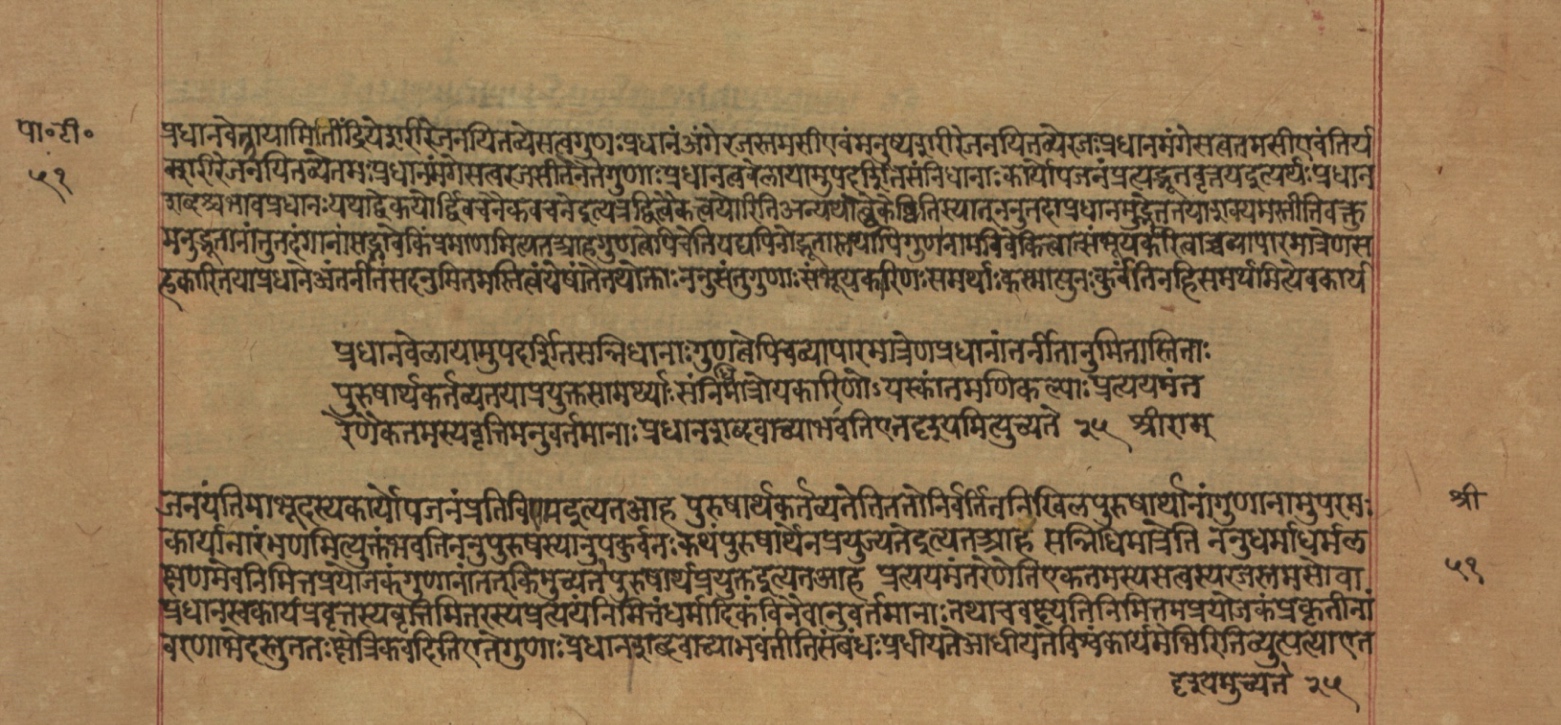 पा॰टी॰
५१
प्रधानवेलायामितींद्रियेशरीरेजनयितव्येसत्वगुणःप्रधानंअंगेरजस्तमसीएवंमनुष्यशरीरेजनयितव्येरजःप्रधानमंगेसत्वतमसीएवंतिर्य
क्शरीरेजनयितव्येतमःप्रधानमंगेसत्वरजसीतेनैतेगुणाःप्रधानत्ववेलायामुपदर्शितसंनिधानाःकार्योपजननंप्रत्युद्भूतवृत्तयइत्यर्थःप्रधान
शब्दश्चभावप्रधानःयथाद्वेकयोर्द्विवचनैकवचनेइत्यत्रद्वित्वैकत्वयोरितिअन्यथाद्वेकेष्वितिस्यात्ननुतदाप्रधानमुद्भूततयाशक्यमस्तीतिवक्तु
मनुद्भूतानांतुतदंगानांसद्भावेकिंप्रमाणमित्यतआहगुणत्वेपिचेतियद्यपिनोद्भूतास्तथापिगुणानामविवेकित्वात्संभूयकारित्वाच्चव्यापारमात्रेणस
हकारितयाप्रधानेअंतर्नीतंसदनुमितमस्तित्वंयेषांतेतथोक्ताःननुसंतुगुणाःसंभूयकारिणःसमर्थाःकस्मात्पुनःकुर्वंतिनहिसमर्थमित्येवकार्यं
प्रधानवेळायामुपदर्शितसन्निधानाःगुणत्वेपिचव्यापारमात्रेणप्रधानांतर्नीतानुमितास्तिताः
पुरुषार्थकर्तव्यतयाप्रयुक्तसामर्थ्याःसंनिधिमात्रोपकारिणोऽयस्कांतमणिकल्पाःप्रत्ययमंत
रेणैकतमस्यवृत्तिमनुवर्तमानाःप्रधानशब्दवाच्याभवंतिएतद्दृश्यमित्युच्यते २५ श्रीराम्
जनयंतिमाभूदस्यकार्योपजननंप्रतिविरामइत्यतआह पुरुषार्थकर्तव्यतेतिततोनिर्वर्तितनिखिलपुरुषार्थानांगुणानामुपरमः
श्री
कार्यानारंभणमित्युक्तंभवतिननुपुरुषस्यानुपकुर्वतःकथंपुरुषार्थेनप्रयुज्यतेइत्यतआह सन्निधिमात्रेति ननुधर्माधर्मल
५१
क्षणमेवनिमित्तंप्रयोजकंगुणानांतत्किमुच्यतेपुरुषार्थप्रयुक्ताइत्यतआह प्रत्ययमंतरेणेतिएकतमस्यसत्वस्यरजस्तमसोवा
प्रधानस्वकार्यप्रवृत्तस्यवृत्तिमितरस्यप्रत्ययनिमित्तंधर्मादिकंविनैवानुवर्तमानाःतथाचवक्ष्यतिनिमित्तमप्रयोजकंप्रकृतीनां
वरणभेदस्तुततःक्षेत्रिकवदितिएतेगुणाःप्रधानशब्दवाच्याभवंतीतिसंबंधःप्रधीयतेआधीयतेविश्वंकार्यमेभिरितिव्युत्पत्याएत
द्दृश्यमुच्यते २५